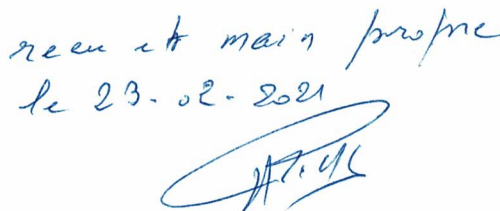 recu en main propre
le 23-02-2021